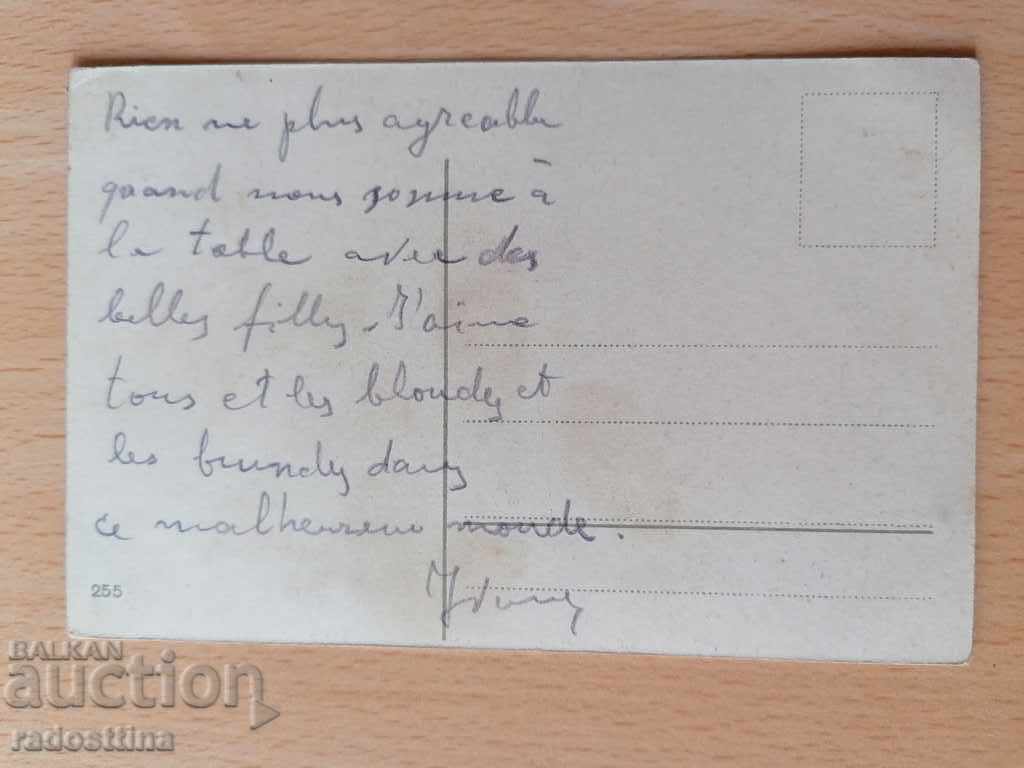 Rien ne plus agreable
quand nous somme à
la table avec des
belles filles. J'aime
tous et les blondes et
les brundes dans
ce malheureu monde.
255
BALKAN
auction
radosttina